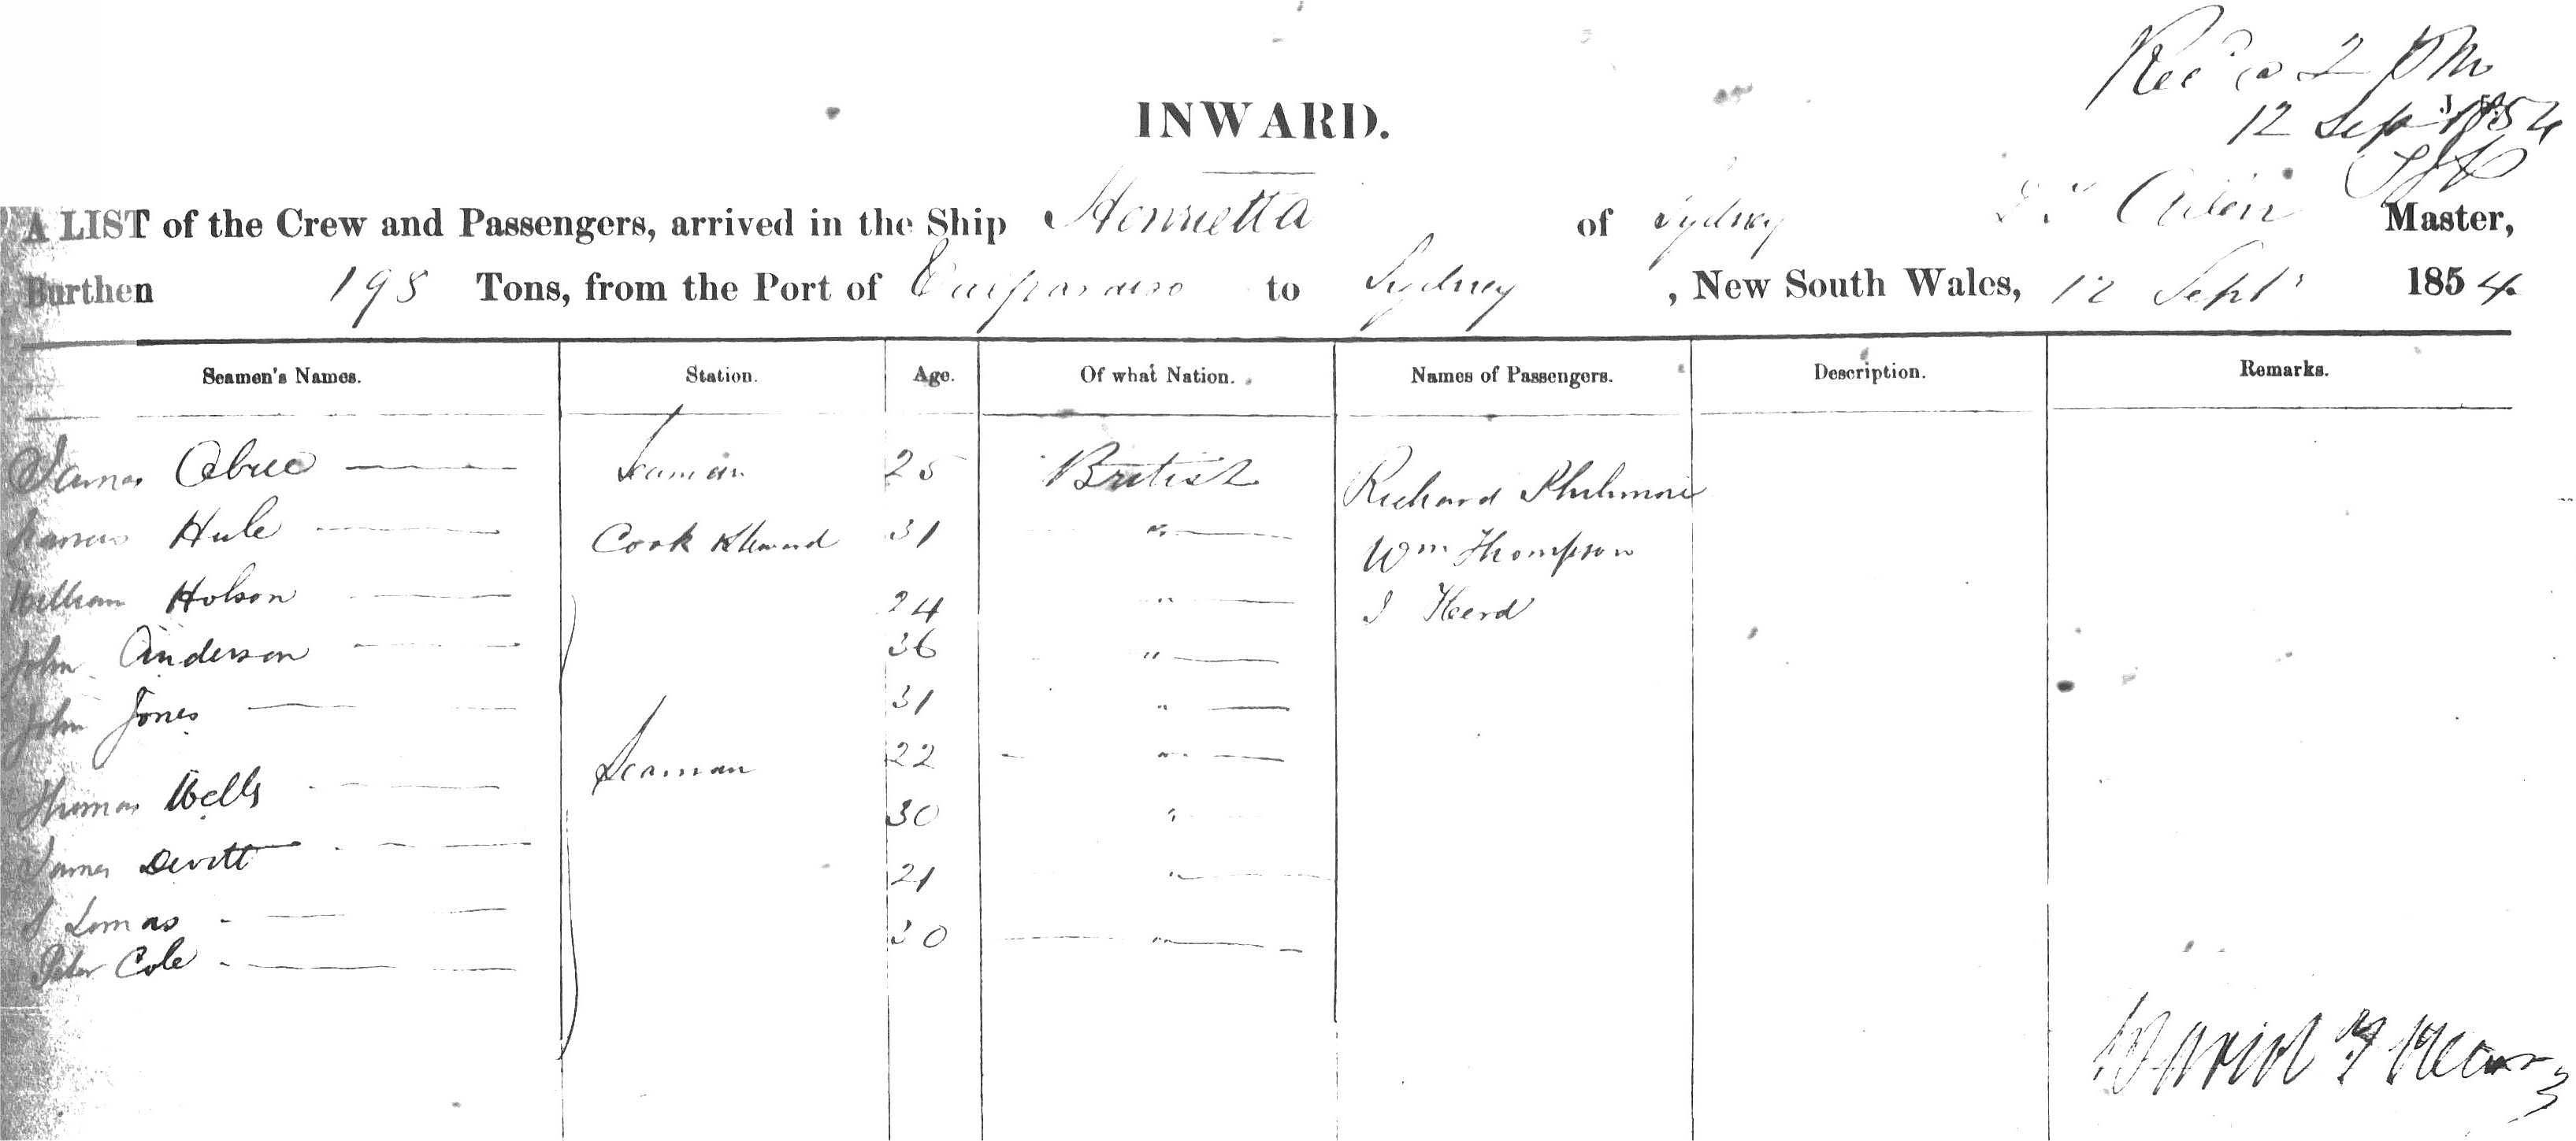 Rec'd @ 2 PM
12 Sep 1854
INWARD.
A LIST of the Crew and Passengers, arrived in the Ship Henrietta of Sydney Master,
Burthen 198 Tons, from the Port of Valparaiso to Sydney , New South Wales, 12 Sept 1854
Seamen's Names. Station. Age. Of what Nation. Names of Passengers. Description. Remarks.
James Seaman 25 British Richard
Hule Cook & Steward 31 " Wm Thompson
William Hobson 24 " J Heerd
John Anderson 36 "
John Jones 31 "
Thomas Wells Seaman 22 "
James Devitt 30 "
Lomas 21 "
Peter Cole 30 "